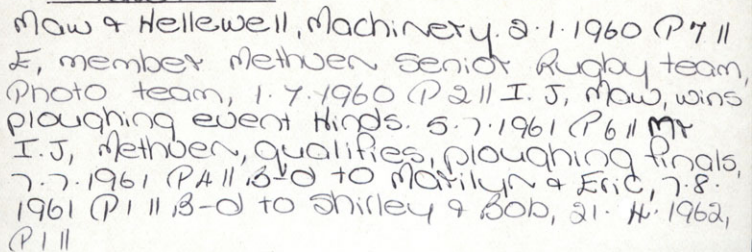 Maw & Hellewell, Machinery. 2.1.1960 P7 ||
E, member Methven Senior Rugby team,
Photo team, 1.7.1960 P2 || I.J, Maw, wins
ploughing event Hinds. 5.7.1961 P6 || Mr
I.J, Methven, qualifies, ploughing finals,
7.7.1961 P4 || B-d to Marilyn & Eric, 7.8.
1961 P1 || B-d to Shirley & Bob, 21.4.1962,
P1 ||